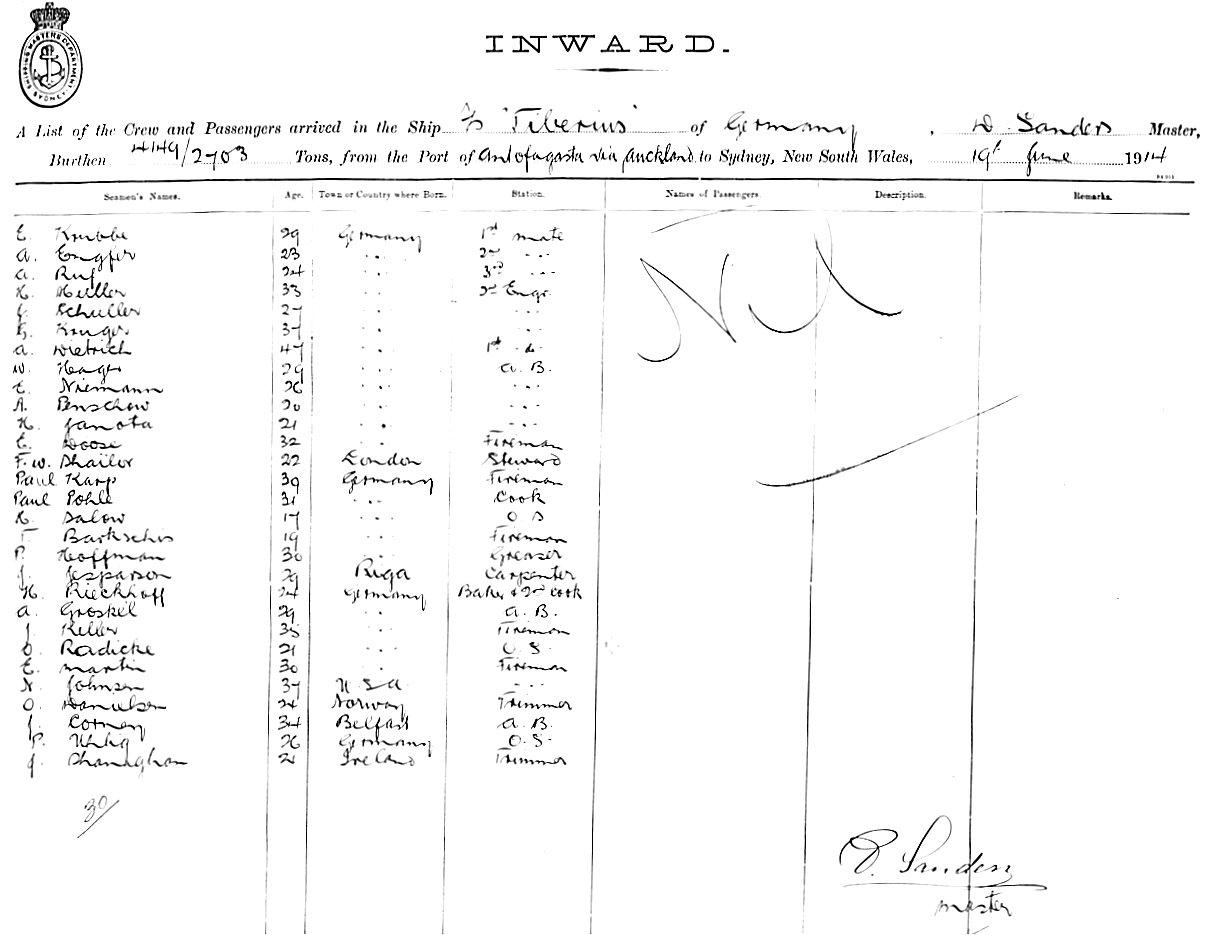 SHIPPING MASTERS DEPARTMENT SYDNEY
INWARD.
A List of the Crew and Passengers arrived in the Ship S/S "Tiberius" of Germany, D. Sanders Master,
Burthen 4149/2703 Tons, from the Port of Antofagasta via Auckland to Sydney, New South Wales, 19th June 1914
Seamen's Names. Age. Town or Country where Born. Station. Names of Passengers. Description. Remarks.
E. Krubbe 29 Germany 1st mate
A. Engfer 23 " 2nd "
A. Ruf 24 " 3rd "
H. Muller 33 " 2nd Engr.
Schuller 27 " "
Kruger 37 " "
A. Dietrich 47 " 1st do
W. Hager 29 " A.B.
E. Niemann 26 " "
A. Benschow 20 " "
H. Janota 21 " "
E. Doose 32 " Fireman
F.W. Shailor 22 London Steward
Paul Karp 39 Germany Fireman
Paul Pohle 31 " Cook
Salow 17 " O S
Barkschis 19 " Fireman
P. Hoffman 30 " Greaser
J. Jesparson 29 Riga Carpenter
H. Rieckhoff 24 Germany Baker & 2nd Cook
A. Groskel 29 " A.B.
J. Keller 35 " Fireman
O. Radicke 21 " O.S.
E. Martin 30 " Fireman
N. Johnsen 37 U S A "
O. Danielsen 24 Norway Trimmer
J. Corney 34 Belfast A.B.
P. Uhlig 26 Germany O.S.
J. Shanaghan 21 Ireland Trimmer
Nil
30/
D. Sanders
master